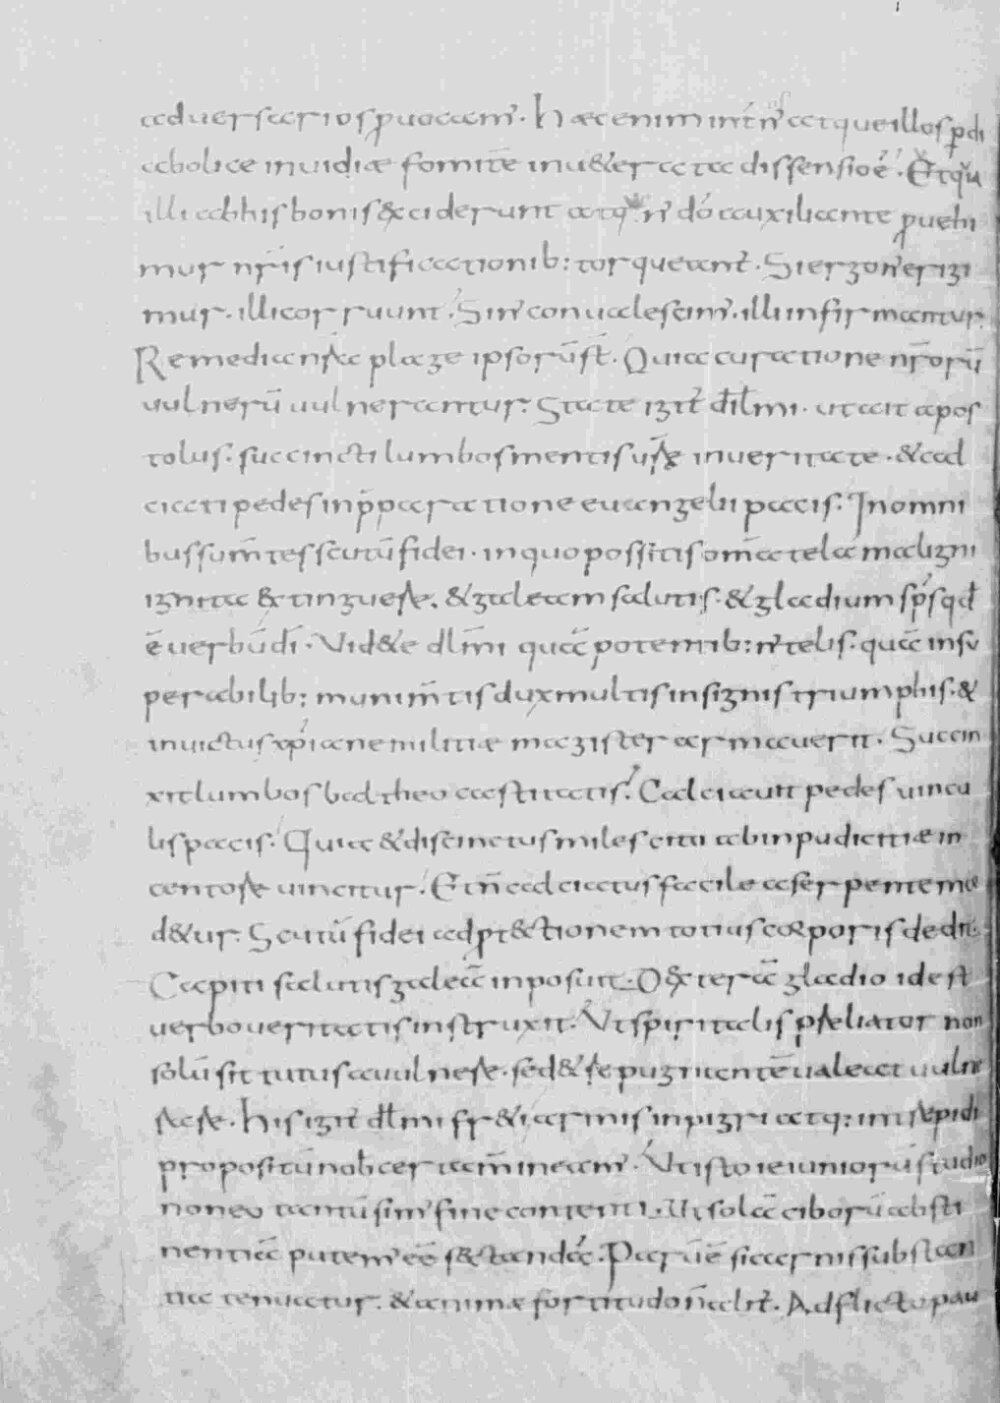 aduersarios ꝓuocam̃. Hæc enim int̃ ñ atque illos ꝑ di
abolicæ inuidiæ fomitẽ inu&erata dissensio ẽ. Et q̃a
illi ab his bonis &ciderunt atq; ñ dõ auxiliante ꝓuehi
mur nr̃is iustificationib: torquẽant̃. Si ergo ñ erigi
mur. illi corruunt. Si ñ conualescim̃. illi infirmantur.
Remedia nr̃a plage ipsorũ st̃. Quia curatione nr̃orũ
uulnerũ uulnerantur. State igit̃ dil̃mi. ut ait apos
tolus. succincti lumbos mentis ur̃æ in ueritate. & cal
ciati pedes in p̃paratione euangelii pacis. In omni
bus sum̃tes scutũ fidei. in quo possitis om̃a tela maligni
ignita &tinguere. & galeam salutis. & gladium sp̃s qd̃
ẽ uerbũ dĩ. Vid&e dl̃mi quã potentib: ñ telis. quã insu
perabilib; munim̃tis dux multis insignis triumphis. &
inuictus xp̃iane militiæ magister armauerit. Succin
xit lumbos baltheo castitatis. Calciauit pedes uincu
lis pacis. Quia & discinctus miles cito ab inpudicitiæ in
centore uincitur. Et ñ calciatus facile a serpente mo
d&ur. Scutũ fidei ad ꝓt&tionem totius corporis dedit.
Capiti salutis galeã inposuit. D&terã gladio id est
uerbo ueritatis instruxit. Vt spiritalis preliator non
solũ sit tutus a uulnere. sed & repugnantẽ ualeat uulne
rare. His igit̃ dl̃mi fr̃& armis inpigri atq: intrepidi
propositũ nob certam̃ ineam̃. Vt isto ieiuniorũ studio
non eo tantũ sim̃ fine contenti. Vt solã ciborũ absti
nentiã putem̃ eẽ s&tandã. Parũ ẽ si carnis substan
tia tenuatur. & animæ fortitudo ñ alit̃. Adflicto pau